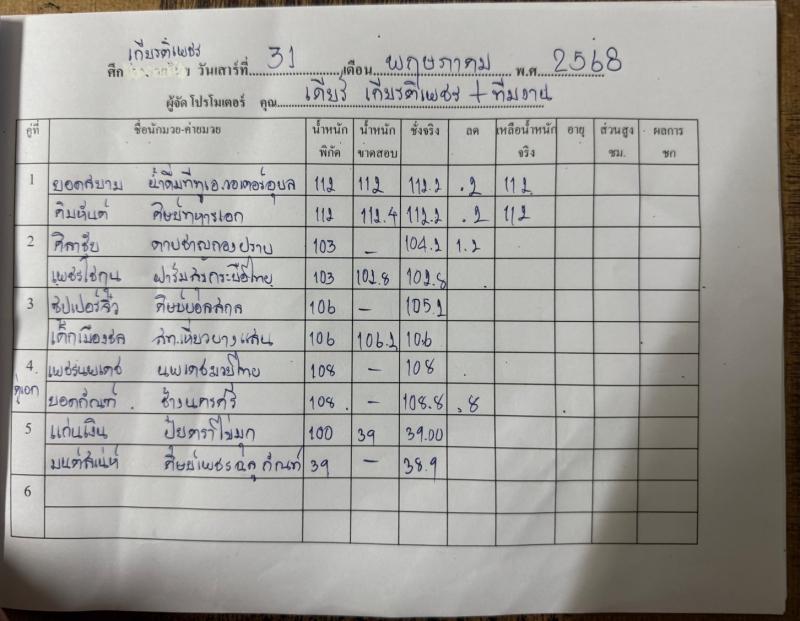 เกียรติเพชร
ศึก วันเสาร์ที่ 31 เดือน พฤษภาคม พ.ศ. 2568
ผู้จัด โปรโมเตอร์ คุณ เดียร์ เกียรติเพชร + ทีมงาน
คู่ที่ ชื่อนักมวย-ค่ายมวย น้ำหนักพิกัด น้ำหนักขาดสอบ ชั่งจริง ลด เหลือน้ำหนักจริง อายุ ส่วนสูง ซม. ผลการชก
1 ยอดสยาม น้ำดื่มทีทูเอ.วอเตอร์อุบล 112 112 112.2 .2 112
คิมหันต์ ศิษย์ทหารเอก 112 112.4 112.2 .2 112
2 ศิลาชัย ดาบชาญกองปราบ 103 – 104.2 1.2
เพชรโชกุน ฟาร์ม 103 102.8 102.8
3 ซุปเปอร์จิ๋ว ศิษย์บอลสกล 106 – 105.2
เด็กเมืองชล สท.เหี่ยวบางแสน 106 106.2 106
4. เพชรนพเดช นพเดชมวยไทย 108 – 108
คู่เอก ยอดกัณฑ์ ช้างนครศรี 108 – 108.8 .8
5 แก่นเงิน ปุ๋ยตราไข่มุก 100 39 39.00
มนต์เสน่ห์ ศิษย์เพชร 39 – 38.9
6